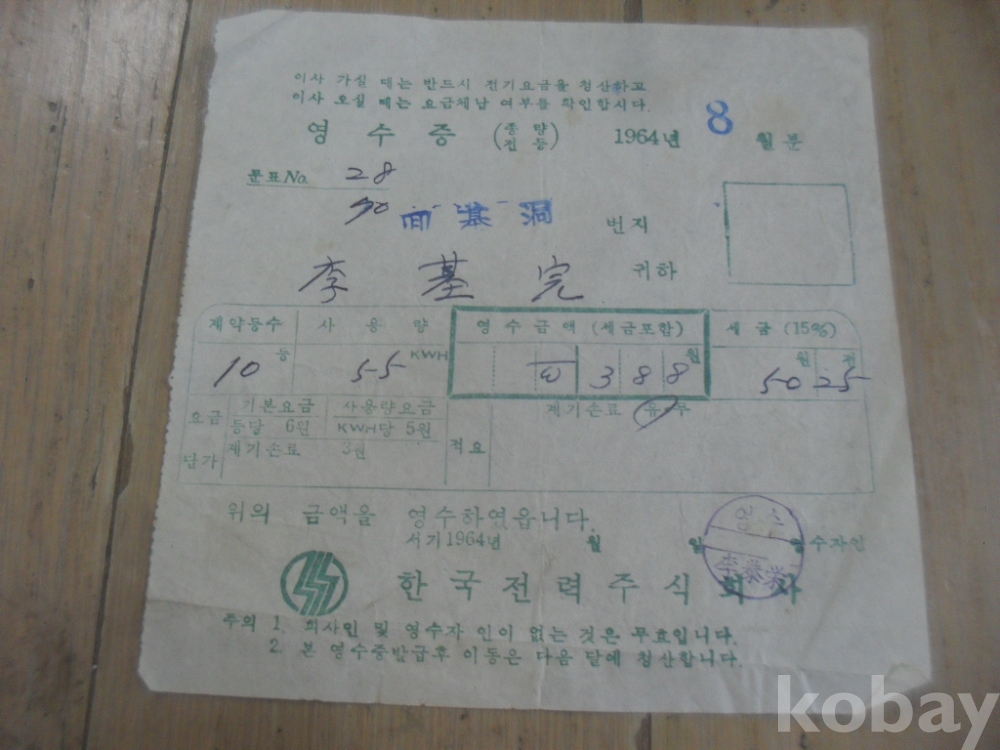 이사 가실 때는 반드시 전기요금을 청산하고
이사 오실 때는 요금체납 여부를 확인합시다.
영 수 증 (종량 전등) 1964년 8 월 분
문표No. 28
90 面 基 洞 번지
李 基 完 귀하
계약등수 사 용 량 영 수 금 액 (세금포함) 세 금 (15%)
10 등 55 KWH ₩ 388 원 50 원 25 전
요금 단가 기본요금 사용량요금 적요 계기손료 유/무
등당 6원 KWH당 5원
계기손료 3원
위의 금액을 영수하였읍니다.
서기1964년 월 일 수자인
한국전력주식회사
주의 1. 회사인 및 영수자 인이 없는 것은 무효입니다.
2. 본 영수증발급후 이동은 다음 달에 청산합니다.
kobay